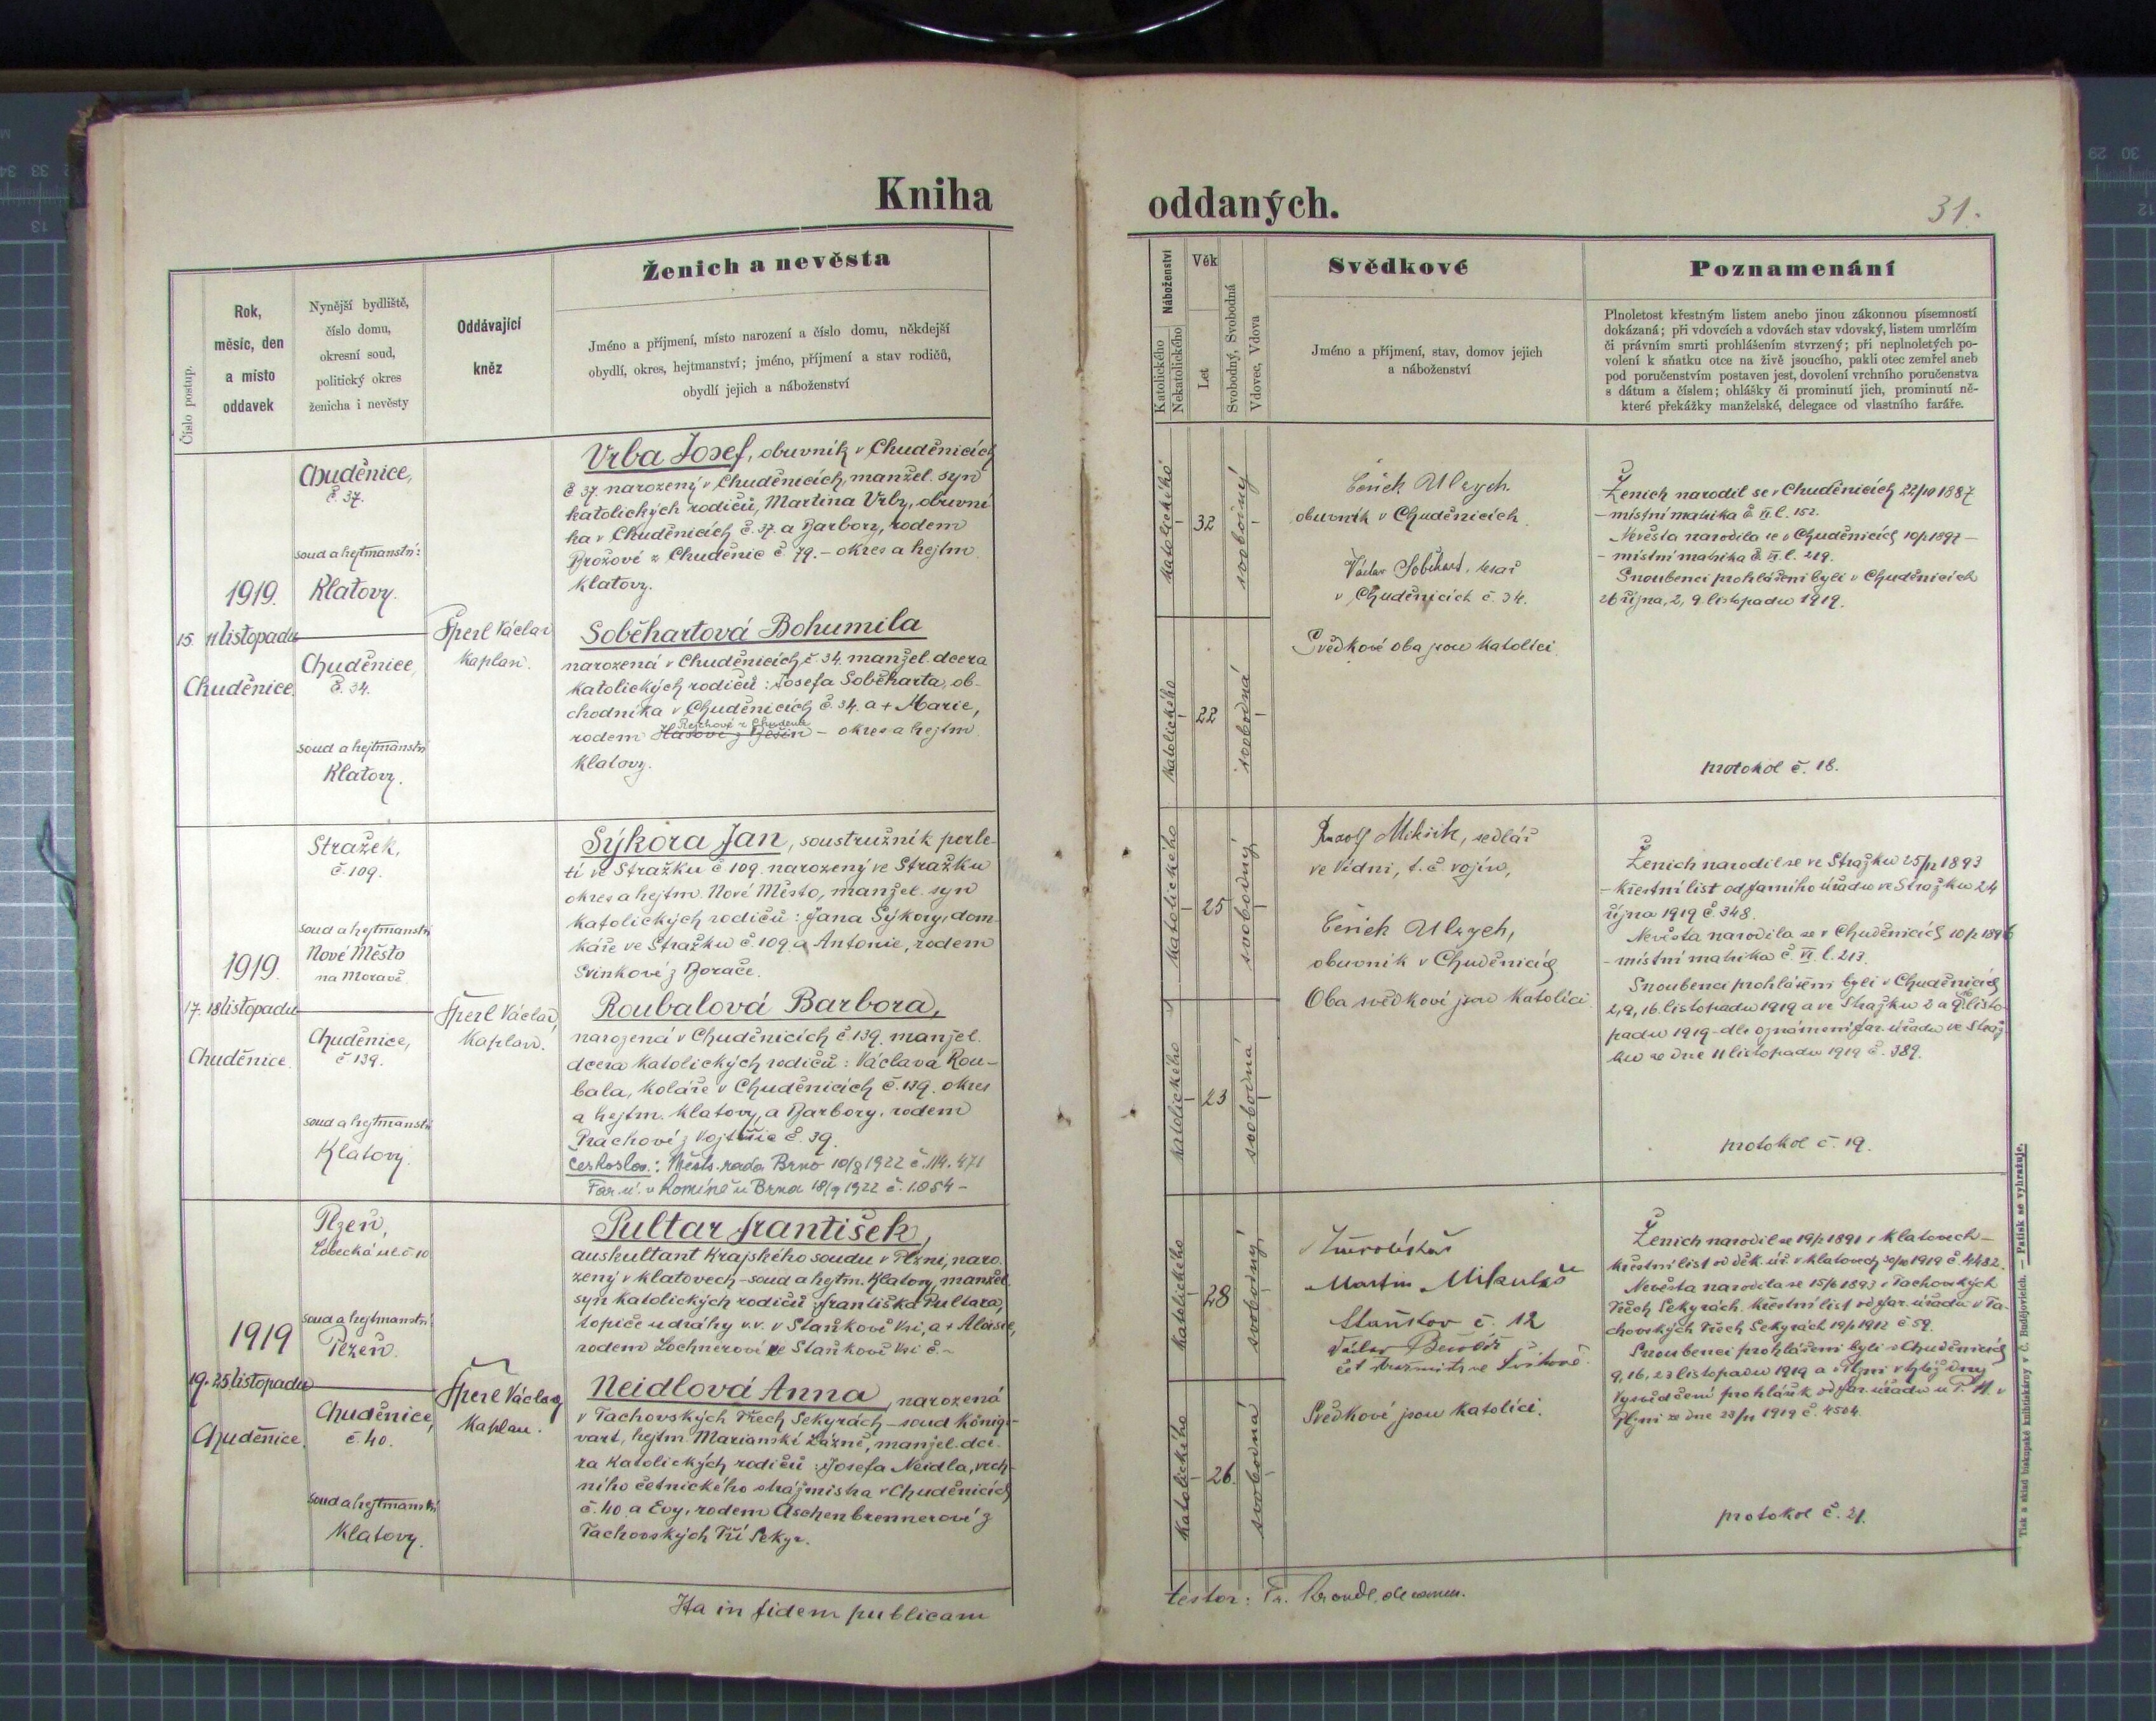 Kniha
oddaných.
31.
Číslo postup.
Rok,
měsíc, den
a místo
oddavek
Nynější bydliště,
číslo domu,
okresní soud,
politický okres
ženicha i nevěsty
Oddávající
kněz
Ženich a nevěsta
Jméno a příjmení, místo narození a číslo domu, někdejší
obydlí, okres, hejtmanství; jméno, příjmení a stav rodičů,
obydlí jejich a náboženství
Náboženství
Katolického
Nekatolického
Věk
Let
Svobodný, Svobodná
Vdovec, Vdova
Svědkové
Jméno a příjmení, stav, domov jejich
a náboženství
Poznamenání
Plnoletost křestným listem anebo jinou zákonnou písemností
dokázaná; při vdovcích a vdovách stav vdovský, listem umrlčím
či právním smrti prohlášením stvrzený; při neplnoletých po-
volení k sňatku otce na živě jsoucího, pakli otec zemřel aneb
pod poručenstvím postaven jest, dovolení vrchního poručenstva
s dátum a číslem; ohlášky či prominutí jich, prominutí ně-
které překážky manželské, delegace od vlastního faráře.
15.
1919.
11 listopadu
Chuděnice.
Chuděnice,
č. 37.
soud a hejtmanství:
Klatovy.
Chuděnice,
č. 34.
soud a hejtmanství
Klatovy.
Šperl Václav
kaplan.
Vrba Josef, obuvník v Chuděnicích
č 37. narozený v Chuděnicích, manžel. syn
katolických rodičů, Martina Vrby, obuvní
ka v Chuděnicích č. 37. a Barbory, rodem
Brožové z Chuděnic č 79. – okres a hejtm.
Klatovy.
Soběhartová Bohumila
narozená v Chuděnicích č. 34. manžel. dcera
katolických rodičů: Josefa Soběharta, ob-
chodníka v Chuděnicích č. 34. a + Marie,
rodem – okres a hejtm.
Klatovy.
katolického
32
svobodný
katolického
22
svobodná
Ulrych.
obuvník v Chuděnicích
Václav Soběhart,
v Chuděnicích č. 34.
Svědkové oba jsou katolíci.
Ženich narodil se v Chuděnicích 22/10 1887
– místní matrika č. VI. l. 152.
Nevěsta narodila se v Chuděnicích 10/2 1897 –
– místní matrika č. VI l. 219.
Snoubenci prohlášeni byli v Chuděnicích
26 října, 2, 9. listopadu 1919.
protokol č. 18.
17.
1919.
18 listopadu
Chuděnice.
Stražek,
č. 109.
soud a hejtmanství
Nové Město
na Moravě.
Chuděnice,
č 139.
soud a hejtmanství
Klatovy.
Šperl Václav,
kaplan.
Sýkora Jan, soustružník perle-
ti ve Stražku č 109. narozený ve Stražku
okres a hejtm. Nové Město, manžel. syn
katolických rodičů: Jana Sýkory, dom-
káře ve Stražku č. 109 a Antonie, rodem
Svinkové z Borače.
Roubalová Barbora,
narozená v Chuděnicích č 139. manžel.
dcera katolických rodičů: Václava Rou-
bala, koláře v Chuděnicích č. 139. okres
a hejtm. Klatovy, a Barbory, rodem
Prachové z č. 39.
českoslov.: Měst. rada Brno 10/8 1922 č. 114.471
Far. ú. v Komíně u Brna 18/9 1922 č. 1.054 –
katolického
25
svobodný
katolického
23
svobodná
Rudolf Mikšík, sedlář
ve Vídni, t. č. vojín,
Ulrych,
obuvník v Chuděnicích
Oba svědkové jsou katolíci
Ženich narodil se ve Stražku 25/12 1893
– křestní list od farního úřadu ve Stražku 24
října 1919 č. 348.
Nevěsta narodila se v Chuděnicích 10/2 1896
– místní matrika č. VI. l. 213.
Snoubenci prohlášeni byli v Chuděnicích
2, 9, 16. listopadu 1919 a ve Stražku 2 a 9. listo-
padu 1919 – dle oznámení far. úřadu ve Straž
ku ze dne 11 listopadu 1919 č. 389.
protokol č. 19.
19.
1919
25 listopadu
Chuděnice.
Plzeň,
ul. č 10
soud a hejtmanství:
Plzeň.
Chuděnice,
č. 40.
soud a hejtmanství
Klatovy.
Šperl Václav
kaplan.
Pultar František,
auskultant krajského soudu v Plzni, naro-
zený v Klatovech – soud a hejtm. Klatovy, manžel.
syn katolických rodičů Františka Pultara,
topiče u dráhy v.v. v Staňkově Vsi, a + Aloisie,
rodem Lochnerové ze Staňkově Vsi č –
Neidlová Anna, narozená
v Tachovských Třech Sekyrách – soud König-
vart, hejtm. Marianské Lázně, manžel. dce-
ra katolických rodičů: Josefa Neidla, vrch-
ního četnického strážmistra v Chuděnicích
č. 40. a Evy, rodem Aschenbrennerové z
Tachovských Tří Sekyr.
katolického
28
svobodný
katolického
26.
svobodná
Martin Mikuláš
Staňkov č. 12
Václav
Svědkové jsou katolíci.
Ženich narodil se 19/1 1891 v Klatovech –
křestní list od děk. úř. v Klatovech 30/10 1919 č. 4482.
Nevěsta narodila se 15/6 1893 v Tachovských
Třech Sekyrách. křestní list od far. úřadu v Ta-
chovských Třech Sekyrách 19/1 1912 č 59.
Snoubenci prohlášeni byli v Chuděnicích
9, 16, 23 listopadu 1919 a v Plzni v tytéž dny
Vysvědčení prohlášk od far. úřadu u P. M. v
Plzni ze dne 23/11 1919 č. 4504.
protokol č. 21.
Ita in fidem publicam
testor: Fr.
Tisk a sklad biskupské knihtiskárny v Č. Budějovicích. — Patisk se vyhražuje.